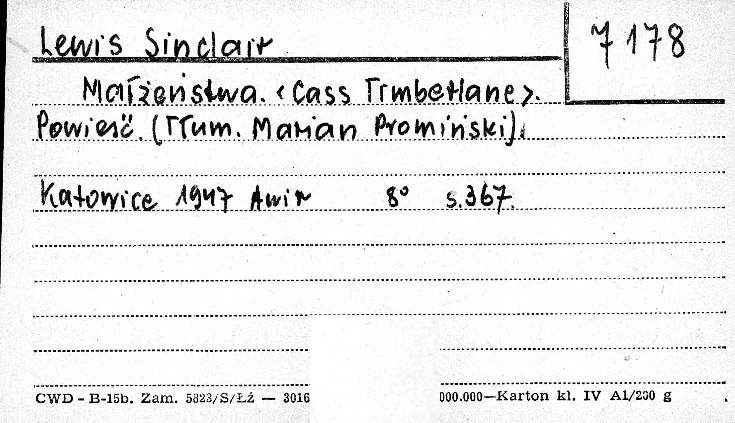 Lewis Sinclair
7178
Małżeństwa. <Cass Timberlane>.
Powieść. (Tłum. Marian Promiński).
Katowice 1947 Awir 8° s.367.
CWD - B-15b. Zam. 5823/S/Łź — 3016
000.000—Karton kl. IV A1/230 g